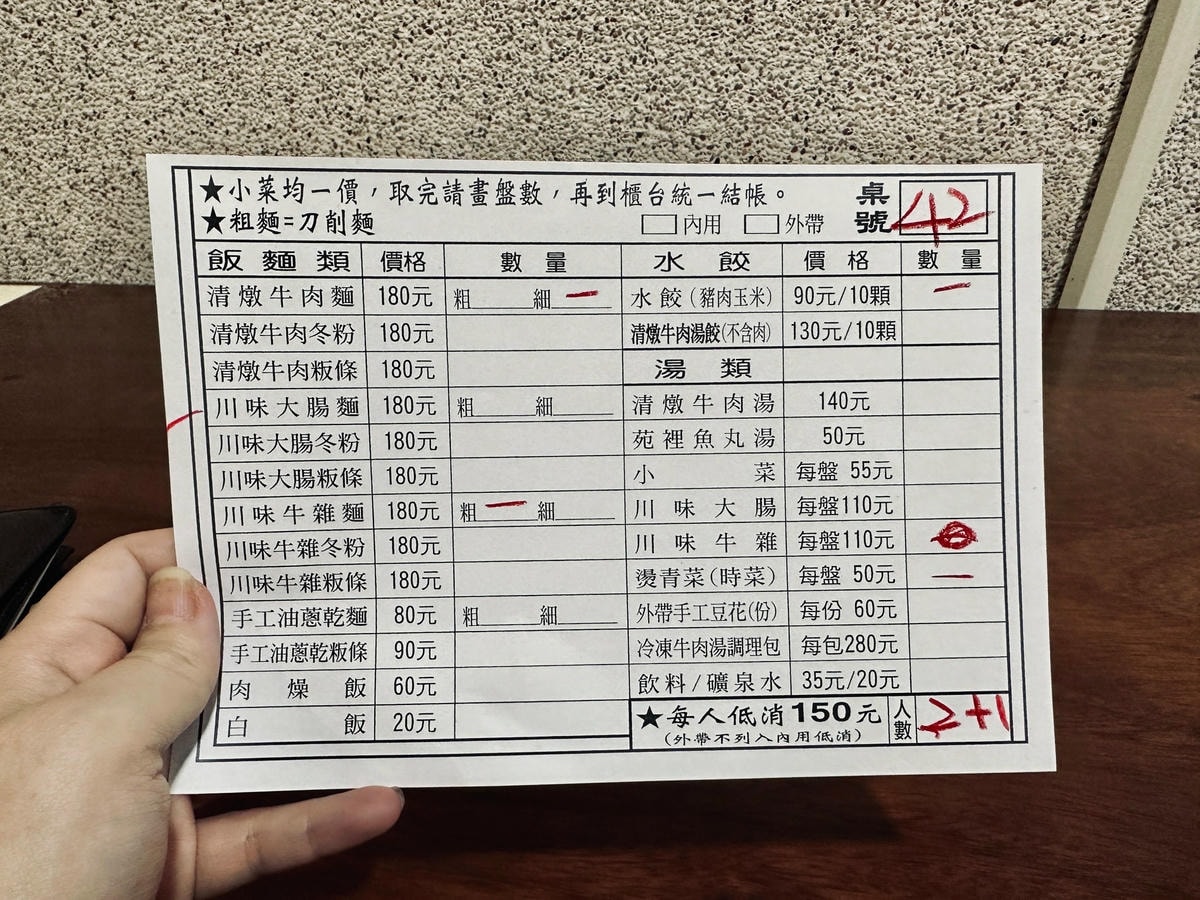 ★小菜均一價，取完請畫盤數，再到櫃台統一結帳。
★粗麵=刀削麵 □內用 □外帶 桌號 42
飯麵類 價格 數量 水餃 價格 數量
清燉牛肉麵 180元 粗 細 一 水餃(豬肉玉米) 90元/10顆 一
清燉牛肉冬粉 180元 清燉牛肉湯餃(不含肉) 130元/10顆
清燉牛肉粄條 180元 湯類
川味大腸麵 180元 粗 細 清燉牛肉湯 140元
川味大腸冬粉 180元 苑裡魚丸湯 50元
川味大腸粄條 180元 小菜 每盤 55元
川味牛雜麵 180元 粗 一 細 川味大腸 每盤110元
川味牛雜冬粉 180元 川味牛雜 每盤110元
川味牛雜粄條 180元 燙青菜(時菜) 每盤 50元 一
手工油蔥乾麵 80元 粗 細 外帶手工豆花(份) 每份 60元
手工油蔥乾粄條 90元 冷凍牛肉湯調理包 每包280元
肉燥飯 60元 飲料/礦泉水 35元/20元
白飯 20元 ★每人低消150元 人數 2+1
(外帶不列入內用低消)